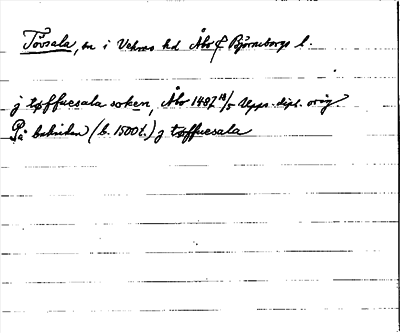 Tövsala, sn i Vehmo hd Åbo & Björneborgs l.
j tøffuesala soken, Åbo 1487 18/5 Upps. dipl. orig.
På baksidan (b. 1500t.) j tøffuesala